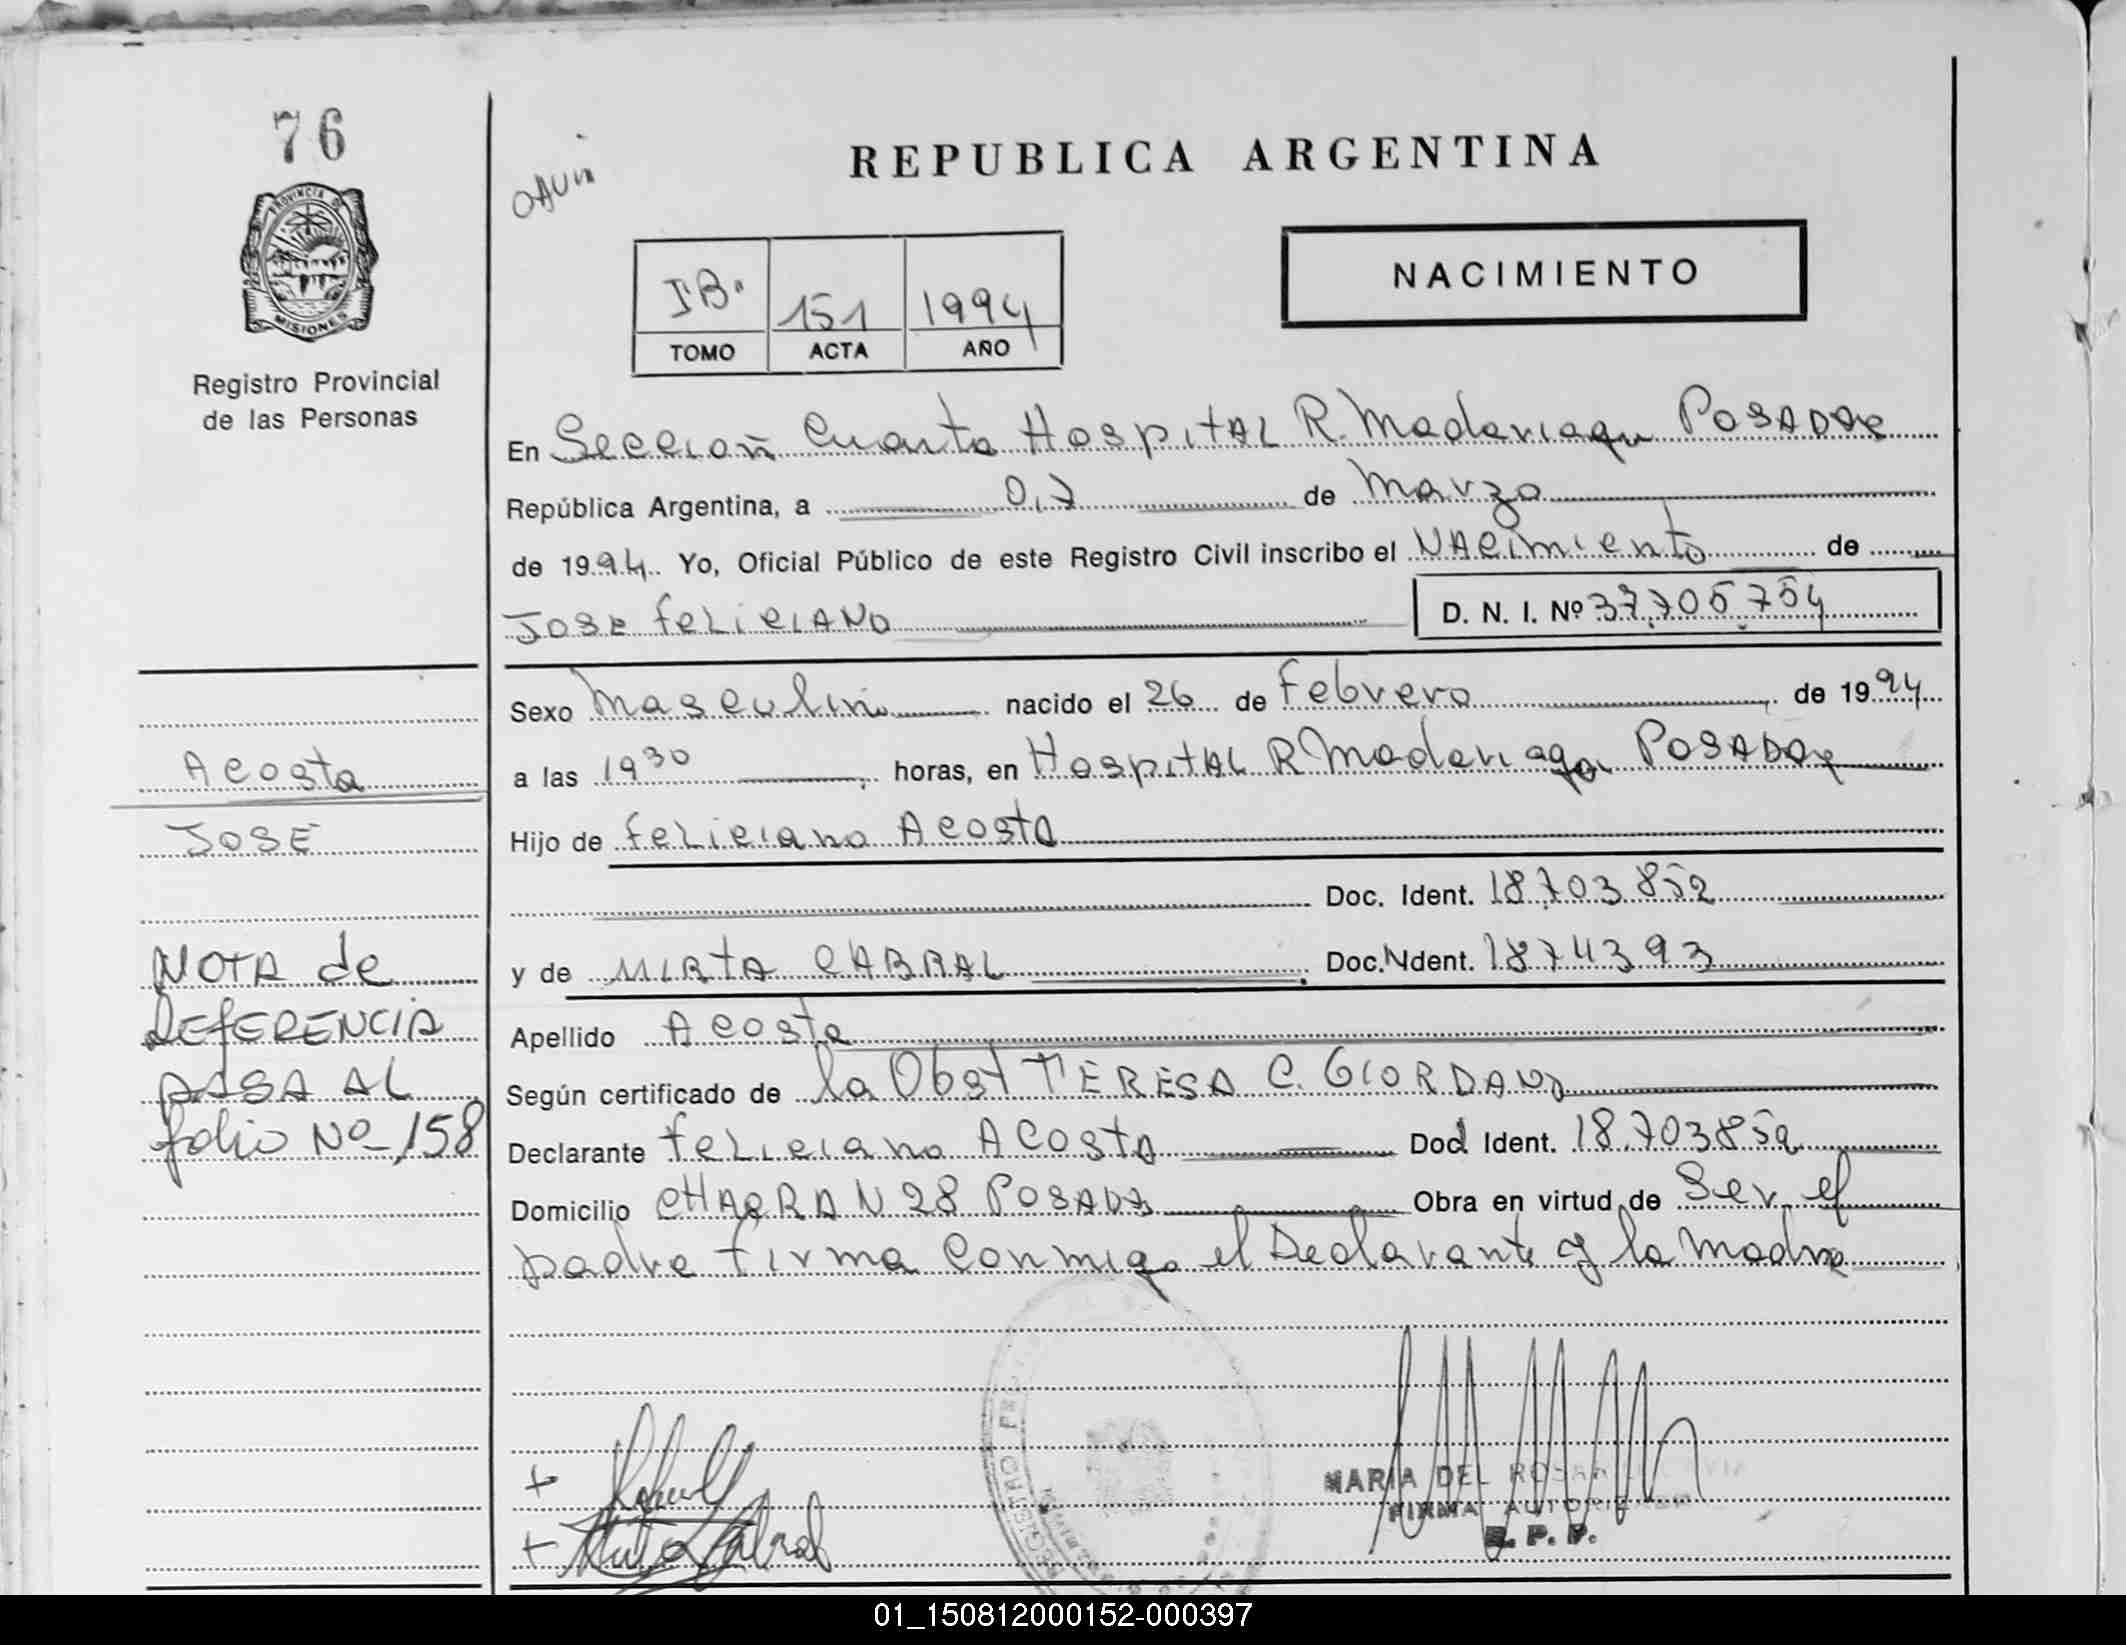 76
PROVINCIA DE
MISIONES
Registro Provincial
de las Personas
REPUBLICA ARGENTINA
NACIMIENTO
IB. 151 1994
TOMO ACTA AÑO
En Sección Cuarta Hospital R. Madariaga POSADAS
República Argentina, a 0,7 de Marzo
de 1994. Yo, Oficial Público de este Registro Civil inscribo el NAcimiento de
JOSE FELICIANO D. N. I. Nº 37.705.754
Sexo Masculino nacido el 26 de Febrero de 1994
a las 19 30 horas, en Hospital R Madariaga POSADAS
Hijo de Feliciano Acosta
Doc. Ident. 18.703.852
y de MIRTA CABRAL Doc. Ident. 1874393
Apellido Acosta
Según certificado de la Obst TERESA C. GIORDANO
Declarante Feliciano Acosta Doc. Ident. 18.703852
Domicilio CHACRA N 28 POSADAS Obra en virtud de Ser el
padre firma Conmigo el Declarante y la madre
Acosta
JOSÉ
NOTA de
REFERENCIA
PASA AL
folio Nº 158
+
+ Mirta Cabral
MARIA DEL
FIRMA AUTORIZADA
R. P. P.
01_150812000152-000397